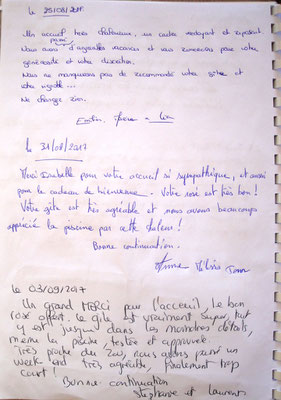 le 25/08/2017
Un accueil très chaleureux, un cadre verdoyant et reposant.
Nous avons passé d'agréables vacances et vous remercions pour votre
générosité et votre discrétion.
Nous ne manquerons pas de recommander votre gîte et
votre
Ne changez rien.
le 31/08/2017
Merci Isabelle pour votre accueil si sympathique, et aussi
pour le cadeau de bienvenue. Votre rosé est très bon!
Votre gîte est très agréable et nous avons beaucoup
apprécié la piscine par cette chaleur!
Bonne continuation.
Anne Tom
le 03/09/2017
Un grand Merci pour l'acceuil, le bon
rosé offert, le gîte est vraiment super, tout
y est jusqu'in dans les moindres détails,
même la piscine, testée et approuvée.
Très proche du Zoo, nous avons passé un
week end très agréable, finalement trop
court!
Bonne continuation
Stéphanie et Laurent